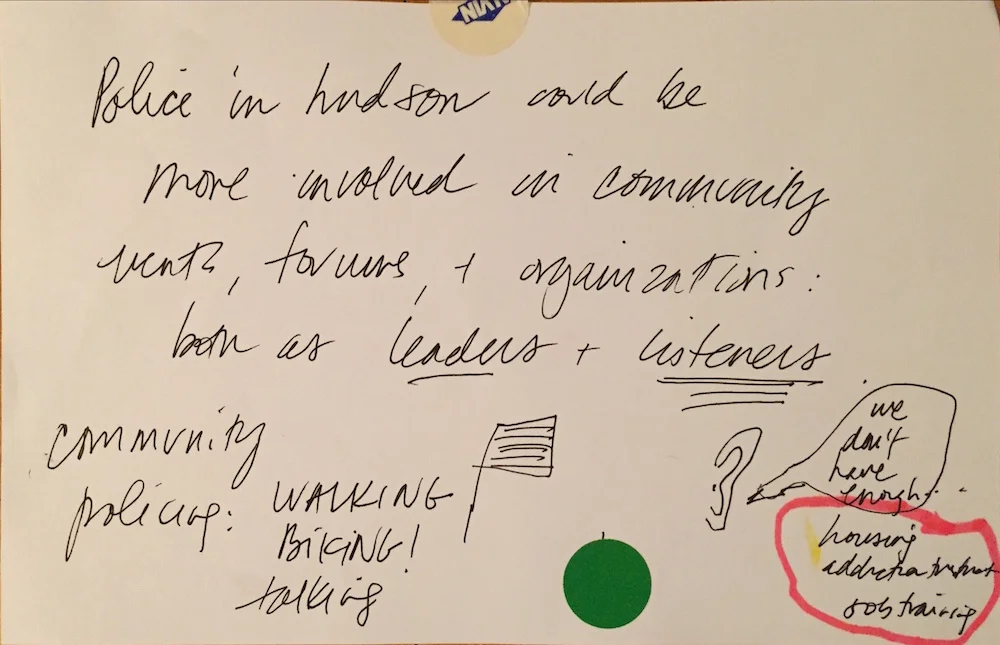 Police in hudson could be
more involved in community
events, forums, + organizations:
both as leaders + listeners
community
policing: WALKING
BIKING!
talking
?
we
don't
have
enough..
housing
addiction treatment
job training